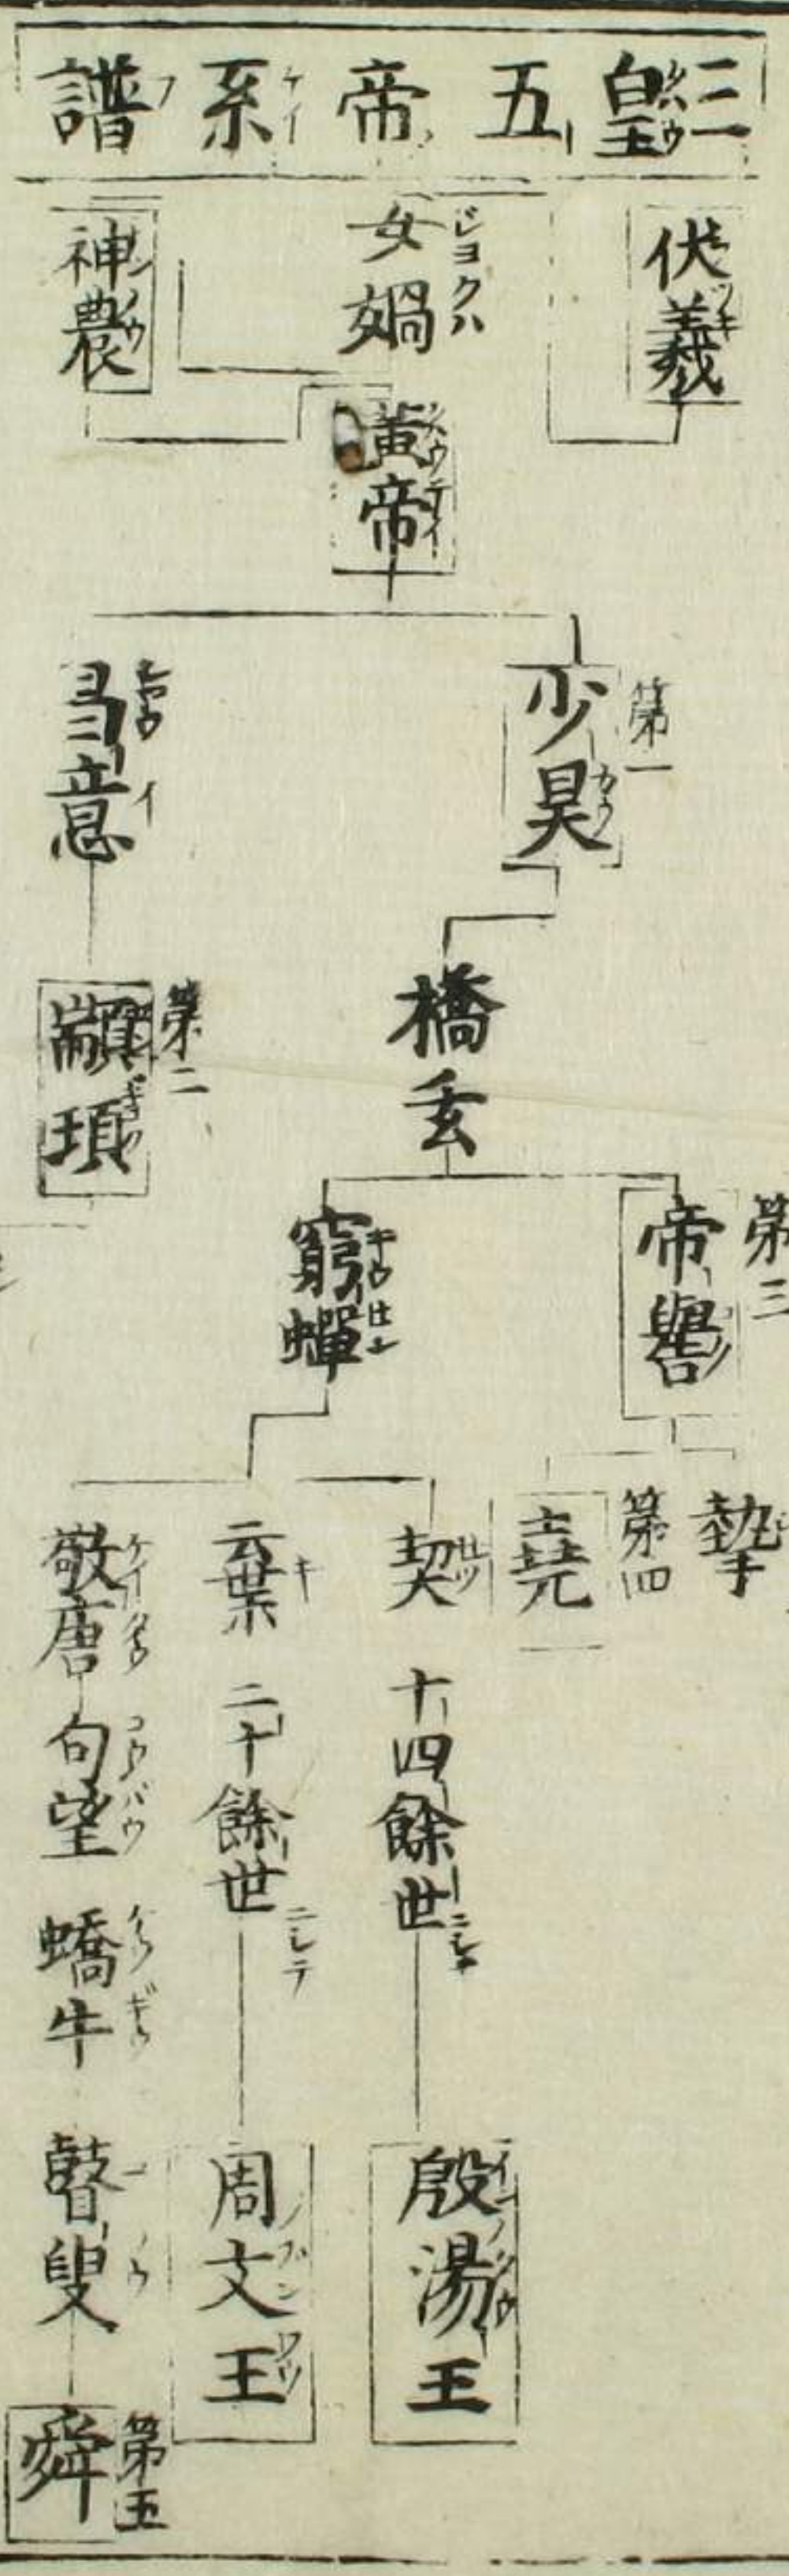 三皇五帝系譜
伏羲
女媧
神農
黃帝
第一
少昊
昌意
橋玄
第二
顓頊
第三
帝嚳
窮蟬
摯
第四
堯
契 十四餘世ニシテ
殷湯王
棄 二十餘世ニシテ
周文王
敬唐
句望
蟜牛
瞽叟
第五
舜